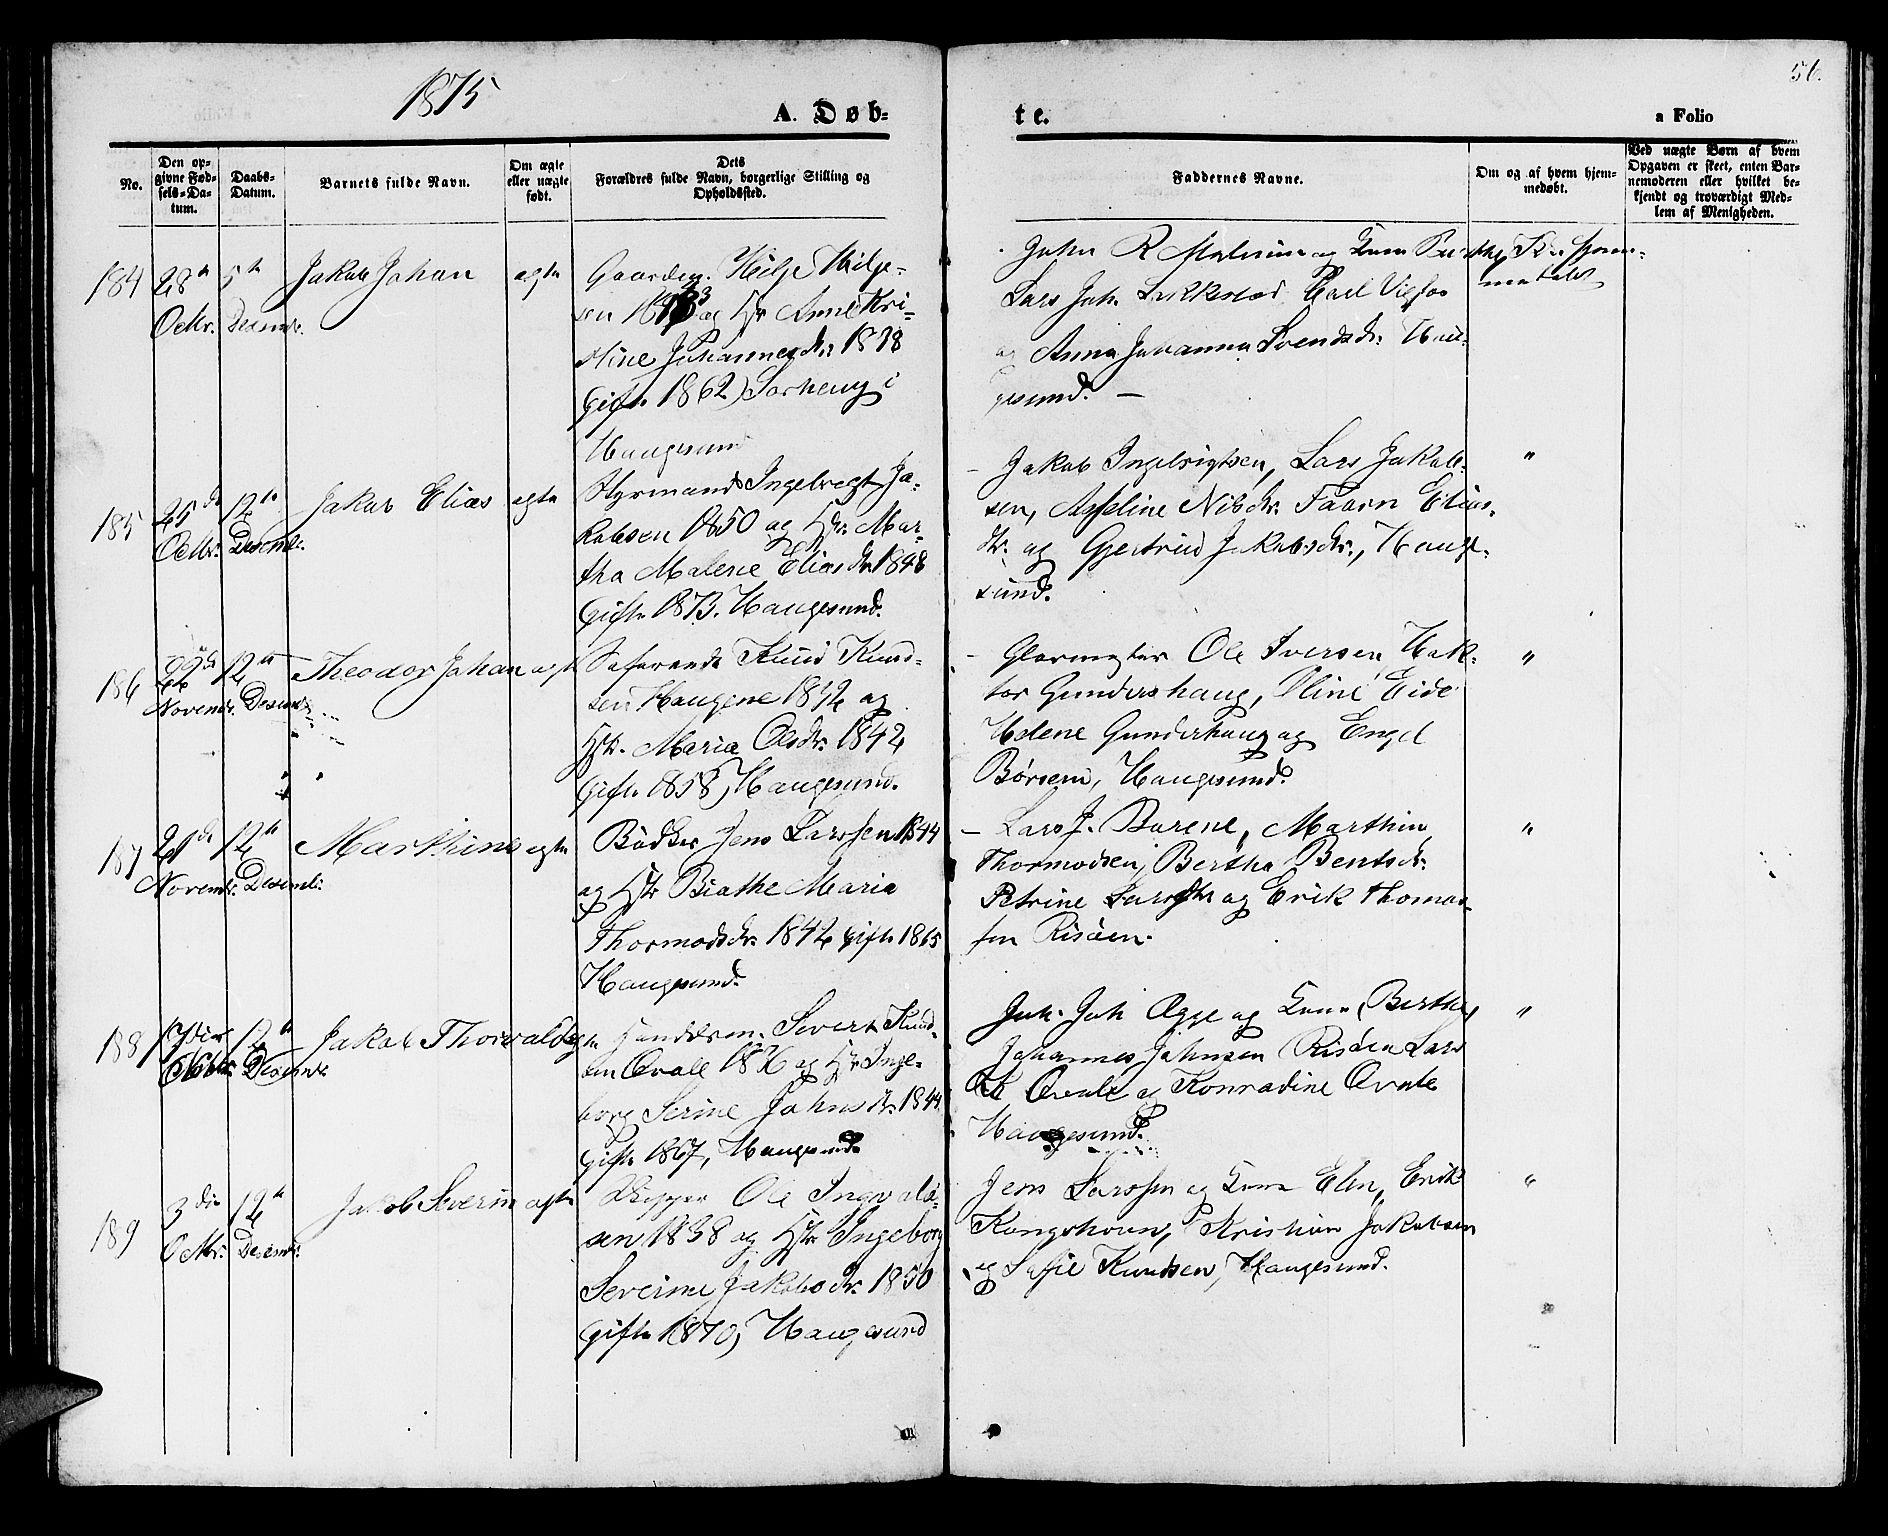 1875
A. Døb-
te.
a Folio
No.
Den op-
givne Fød-
sels-Da-
tum.
Daabs-
Datum.
Barnets fulde Navn.
Om ægte
eller uægte
født.
Dets
Forældres fulde Navn, borgerlige Stilling og
Opholdssted.
Faddernes Navne.
Om og af hvem hjem-
medøbt.
Ved uægte Børn af hvem
Opgaven er skeet, enten Bar-
nemoderen eller hvilket be-
kjendt og troværdigt Med-
lem af Menigheden.
184
28de
Octbr.
5te
Desembr.
Jakob Johan
egte
Gaardeg. Helge Helge-
sen og Hstr Anne Kri-
stine Johannesdtr 1838
Gift 1862) Sørhaug i
Haugesund
John R og Kone
Lars Joh.
og Anna Johanna Svendsdtr. Hau-
gesund. —
185
25de
Octbr.
12te
Desembr.
Jakob Elias
egte
Styrmand Ingebregt Ja-
kobsen 1850 og Hstr. Mar-
tha Malene Eliasdtr 1848
Gift 1873. Haugesund.
— Jakob Ingebrigtsen, Lars Jakob-
sen, Nilsdtr. Elias-
dtr. og Gjertrud Jakobsdtr., Hauge-
sund.
"
186
22de
Novembr.
12te
Desembr.
Theodor Johan
egte
Søfarende Knud Knud-
sen Haugene 1842 og
Hstr. Maria Olsdtr. 1842
Gift 1858, Haugesund.
— Glarmester Ole Iversen Hak-
tor Gundershaug, Oline Eide
Helene Gundershaug og Engel
Børsem, Haugesund.
"
187
21de
Novembr.
12te
Desembr.
Marthine
egte
Bødker Jens Larssen 1844
og Hstr Beathe Maria
Thormodsdtr. 1842 gift 1865
Haugesund.
— Lars J. Marthin
Thormodsen, Bertha Bentsdtr.
Petrine Larsdtr og Erik Thomas-
sen Risøen.
"
188
12te
Desembr.
Jakob Thorvald
egte
Handelsm. Severt Knud-
sen Qvale og Hstr Inge-
borg Serine Johnsdtr. 1844
Gift 1867, Haugesund.
Joh. Joh og Kone Berthe,
Johannes Johnsen Risøen Lars
K Qvale og Konradine Qvale
Haugesund.
"
189
3die
Octbr.
12te
Desembr.
Jakob Severin
egte
Ole Ingvald-
sen 1838 og Hstr Ingeborg
Severine Jakobsdtr. 1850
Gift 1870, Haugesund
Jens Larssen og Kone Elen, Erik
Kongshavn, Kristian Jakobsen
og Sofie Knudsen, Haugesund.
"